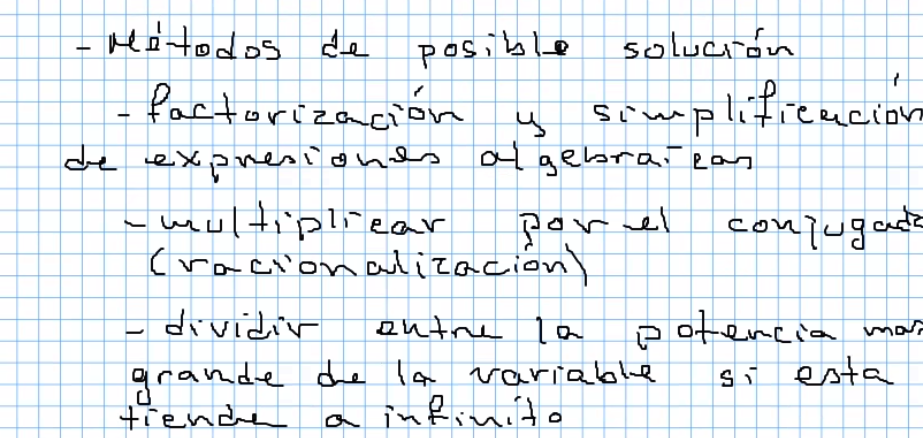 - Métodos de posible solución
- factorización y simplificación
de expresiones algebraicas
- multiplicar por el conjugado
(racionalización)
- dividir entre la potencia mas
grande de la variable si esta
tiende a infinito